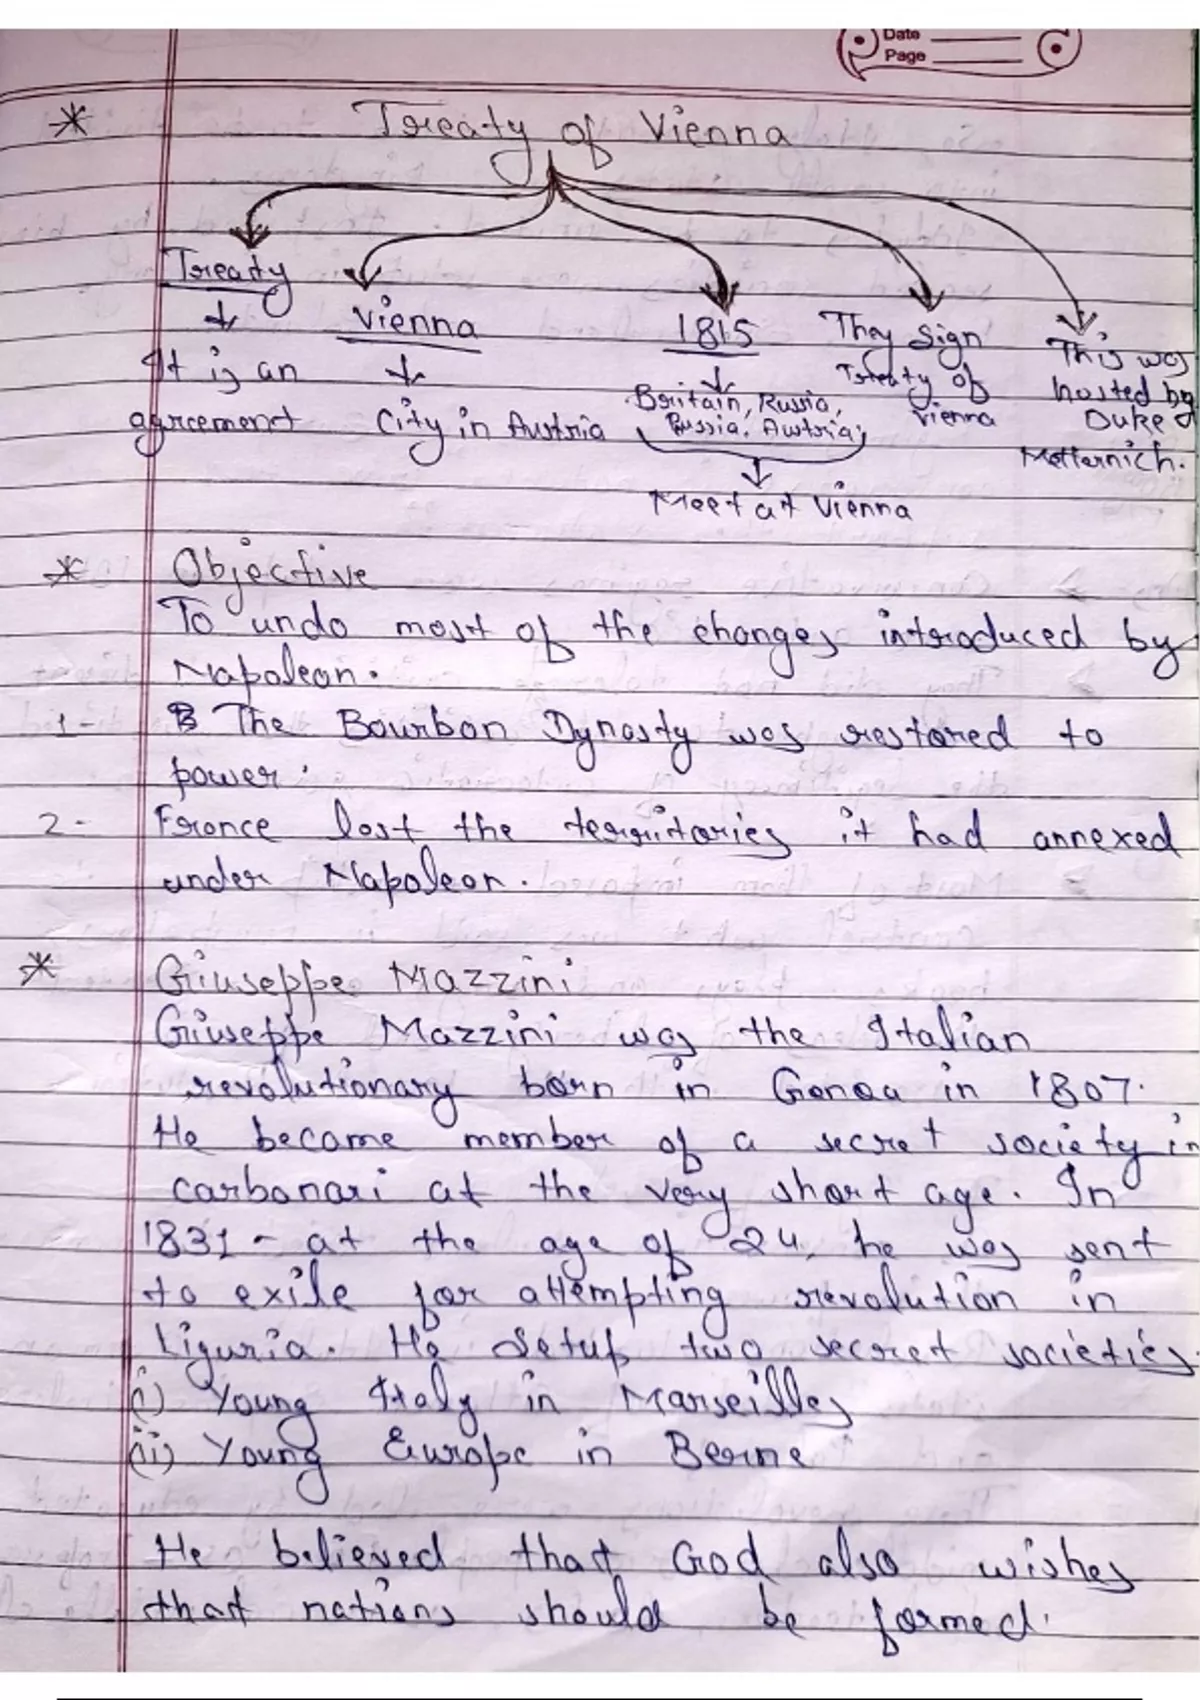 Date
Page
* Treaty of Vienna
Treaty
Vienna
1815
They Sign
Treaty of
Vienna
This was
hosted by
Duke
Metternich.
It is an
agreement
City in Austria
Britain, Russia,
Russia, Austria,
Meet at Vienna
* Objective
To undo most of the changes introduced by
Napoleon.
1- The Bourbon Dynasty was restored to
power.
2- France lost the territories it had annexed
under Napoleon.
* Giuseppe Mazzini
Giuseppe Mazzini was the Italian
revolutionary born in Genoa in 1807.
He became member of a secret society in
carbonari at the very short age. In
1831 - at the age of 24, he was sent
to exile for attempting revolution in
Liguria. He setup two secret societies.
(i) Young Italy in Marseilles
(ii) Young Europe in Berne
He believed that God also wishes
that nations should be formed.